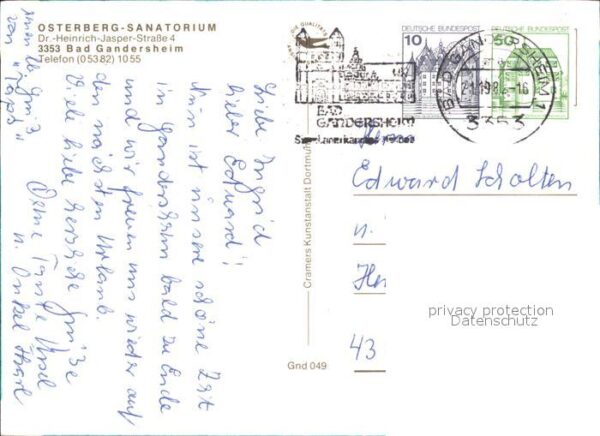 OSTERBERG-SANATORIUM
Dr.-Heinrich-Jasper-Straße 4
3353 Bad Gandersheim
Telefon (05382) 1055
DEUTSCHE BUNDESPOST
10
DEUTSCHE BUNDESPOST
50
BAD GANDERSHEIM 1
-16
3353
BAD
GANDERSHEIM
Liebe Ingrid
lieber Eduard!
Nun ist unsere schöne Zeit
in Gandersheim bald zu Ende
und wir freuen uns wieder auf
den nächsten Urlaub.
Viele liebe herzliche Grüße
Deine Tante
u. Onkel
von "
Edward Scholten
u.
43
Cramers Kunstanstalt Dortmund
Gnd 049
privacy protection
Datenschutz